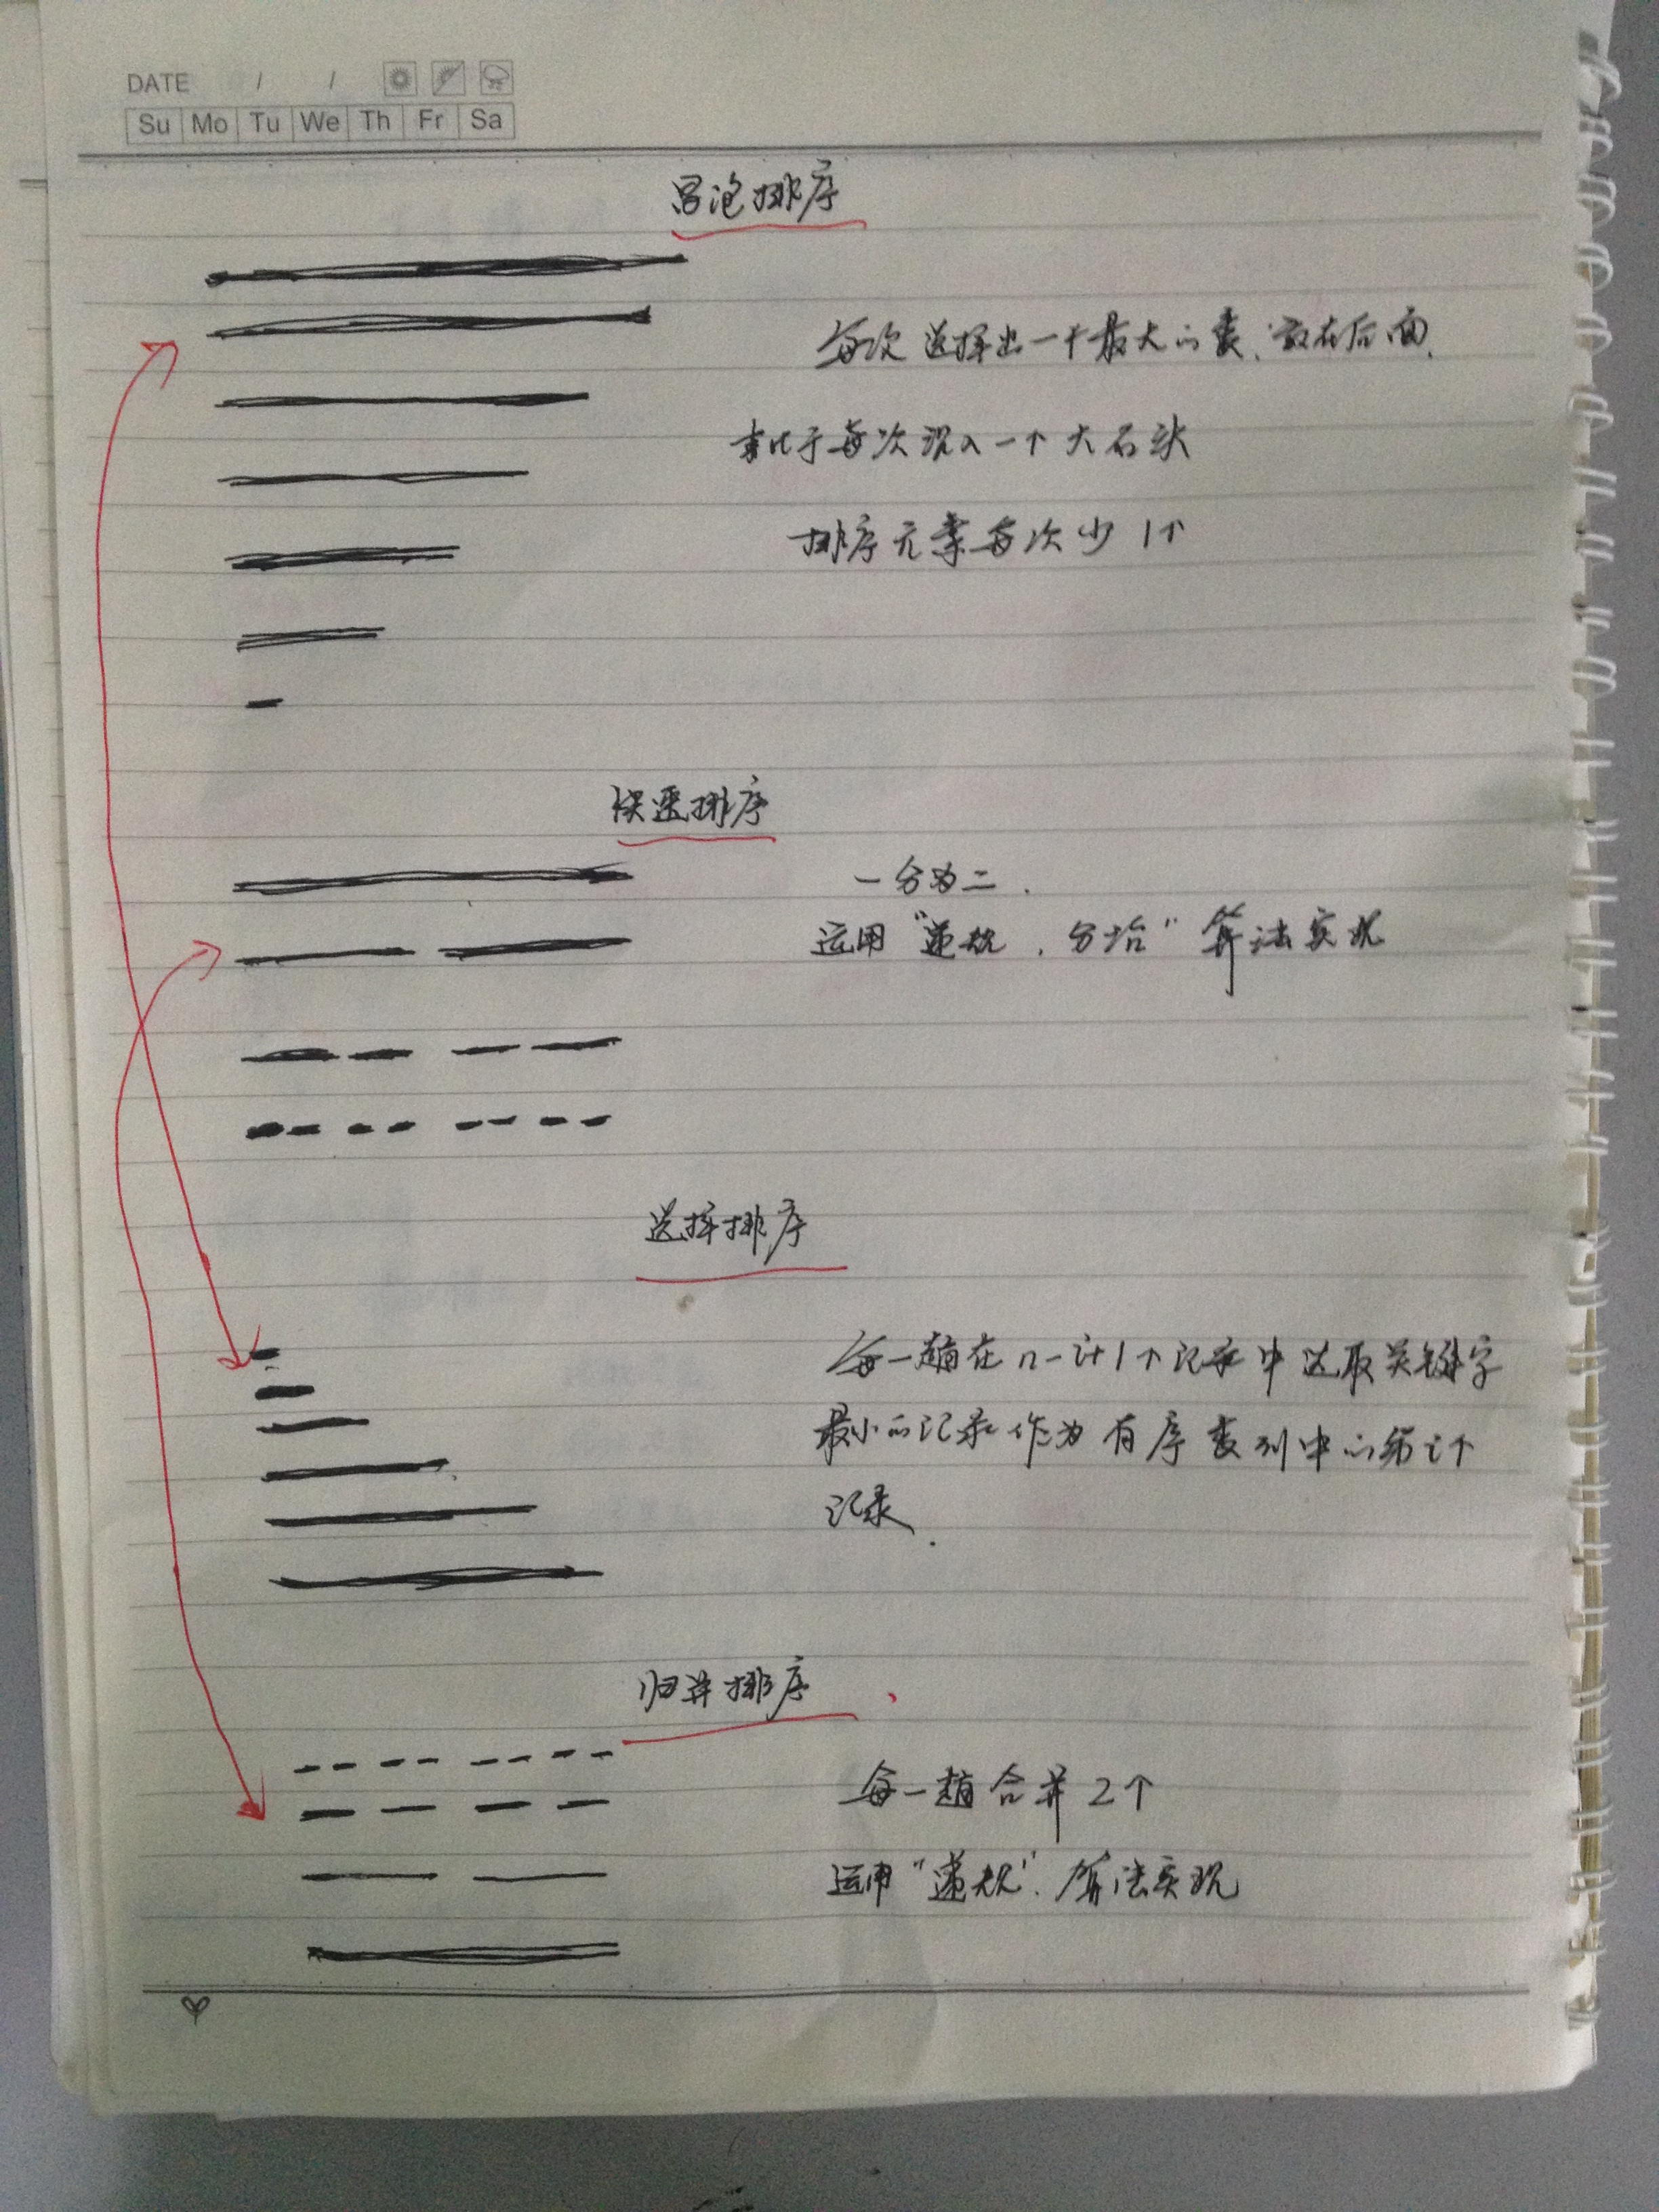 DATE / /
Su Mo Tu We Th Fr Sa
冒泡排序
每次选择出一个最大的数,放在后面,
类比于每次沉入一个大石头
排序元素每次少1个
快速排序
一分为二.
运用“递规,分治”算法实现
选择排序
每一趟在n-i+1个记录中选取关键字
最小的记录作为有序数列中的第i个
记录.
归并排序
每一趟合并2个
运用“递规”算法实现